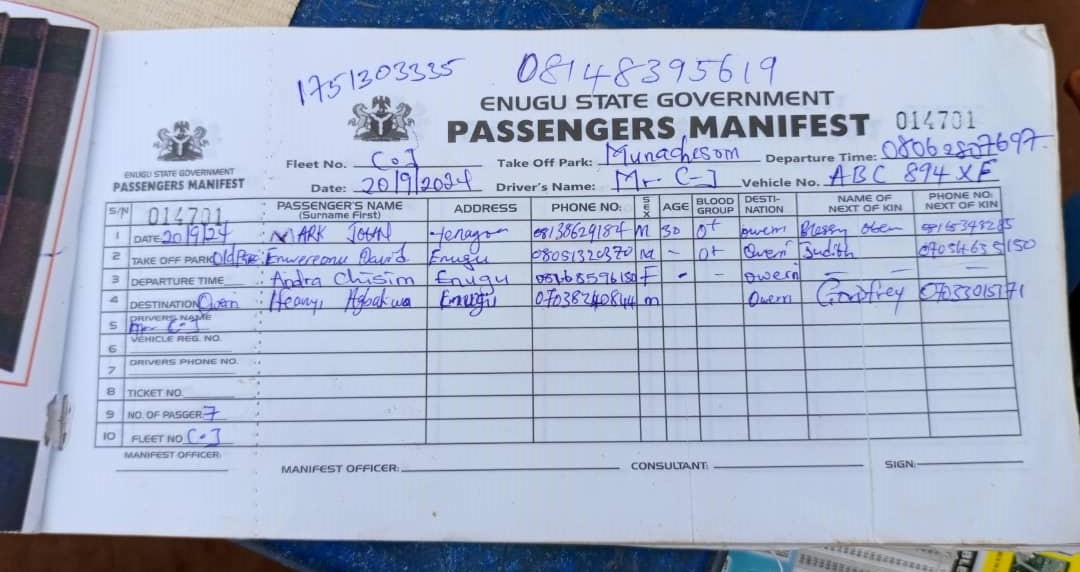 1751303335 08148395619
ENUGU STATE GOVERNMENT
PASSENGERS MANIFEST 014701
Fleet No. C-J Take Off Park: Munachesom Departure Time: 08062807697
Date: 20/9/2024 Driver's Name: Mr C-J Vehicle No. ABC 894 XF
ENUGU STATE GOVERNMENT
PASSENGERS MANIFEST
S/N 014701 PASSENGER'S NAME (Surname First) ADDRESS PHONE NO: SEX AGE BLOOD GROUP DESTI-NATION NAME OF NEXT OF KIN PHONE NO: NEXT OF KIN
1 DATE 20/9/24 MARK JOHN Yenagoa 08138629184 M 30 O+ Owerri Blessing
2 TAKE OFF PARK Old Enwereonu David Enugu 08051320370 M - O+ Owerri Judith
3 DEPARTURE TIME Andra Chisim Enugu F - - Owerri - -
4 DESTINATION Owerri Ifeanyi Agbakwa Enugu 07038240844 m Owerri Godfrey
5 DRIVERS NAME Mr C-J
6 VEHICLE REG. NO.
7 DRIVERS PHONE NO.
8 TICKET NO.
9 NO. OF PASGER 7
10 FLEET NO C-J
MANIFEST OFFICER:
MANIFEST OFFICER: CONSULTANT: SIGN: